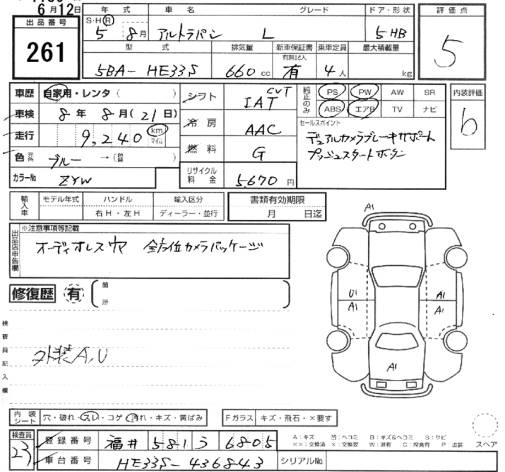 6月12日
出品番号
261
年式 車名 グレード ドア・形状
S・H・R 5年 8月 アルトラパン L 5 HB
型式 排気量 新車保証書 乗車定員 最大積載量
有無記入
5BA-HE33S 660cc 有 4人 kg
評価点
5
車歴 自家用・レンタ( )
車検 8年 8月(21日)
走行 9,240 km マイル
色 ブルー →(
カラーNo ZYW
シフト IAT CVT
冷房 AAC
燃料 G
リサイクル料金 5670円
純正のみ
PS PW AW SR
ABS エアB TV ナビ
セールスポイント
デュアルカメラブレーキサポート
プッシュスタートボタン
内装評価
b
輸入車 モデル年式 ハンドル 輸入区分
右H・左H ディーラー・並行
書類有効期限
月 日迄
出品店申告欄
※注意事項等記載
オーディオレス 全方位カメラパッケージ
修復歴 有 箇所
検査員記入欄
外装A,U
A1
U1
A1
A1
A1
A1
A1
内装シート 穴・破れ・スレ・コゲ・汚れ・キズ・黄ばみ
Fガラス キズ・飛石・×要す
検査員
23
登録番号 福井 581 う 6805
車台番号 HE33S-436843 シリアルNo.
A:キズ U:ヘコミ B:キズ&ヘコミ S:サビ
スペア